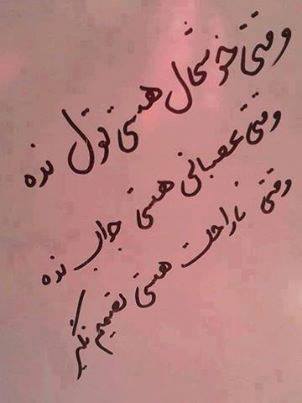 وقتی خوشحال هستی قول نده
وقتی عصبانی هستی جواب نده
وقتی ناراحت هستی تصمیم نگیر